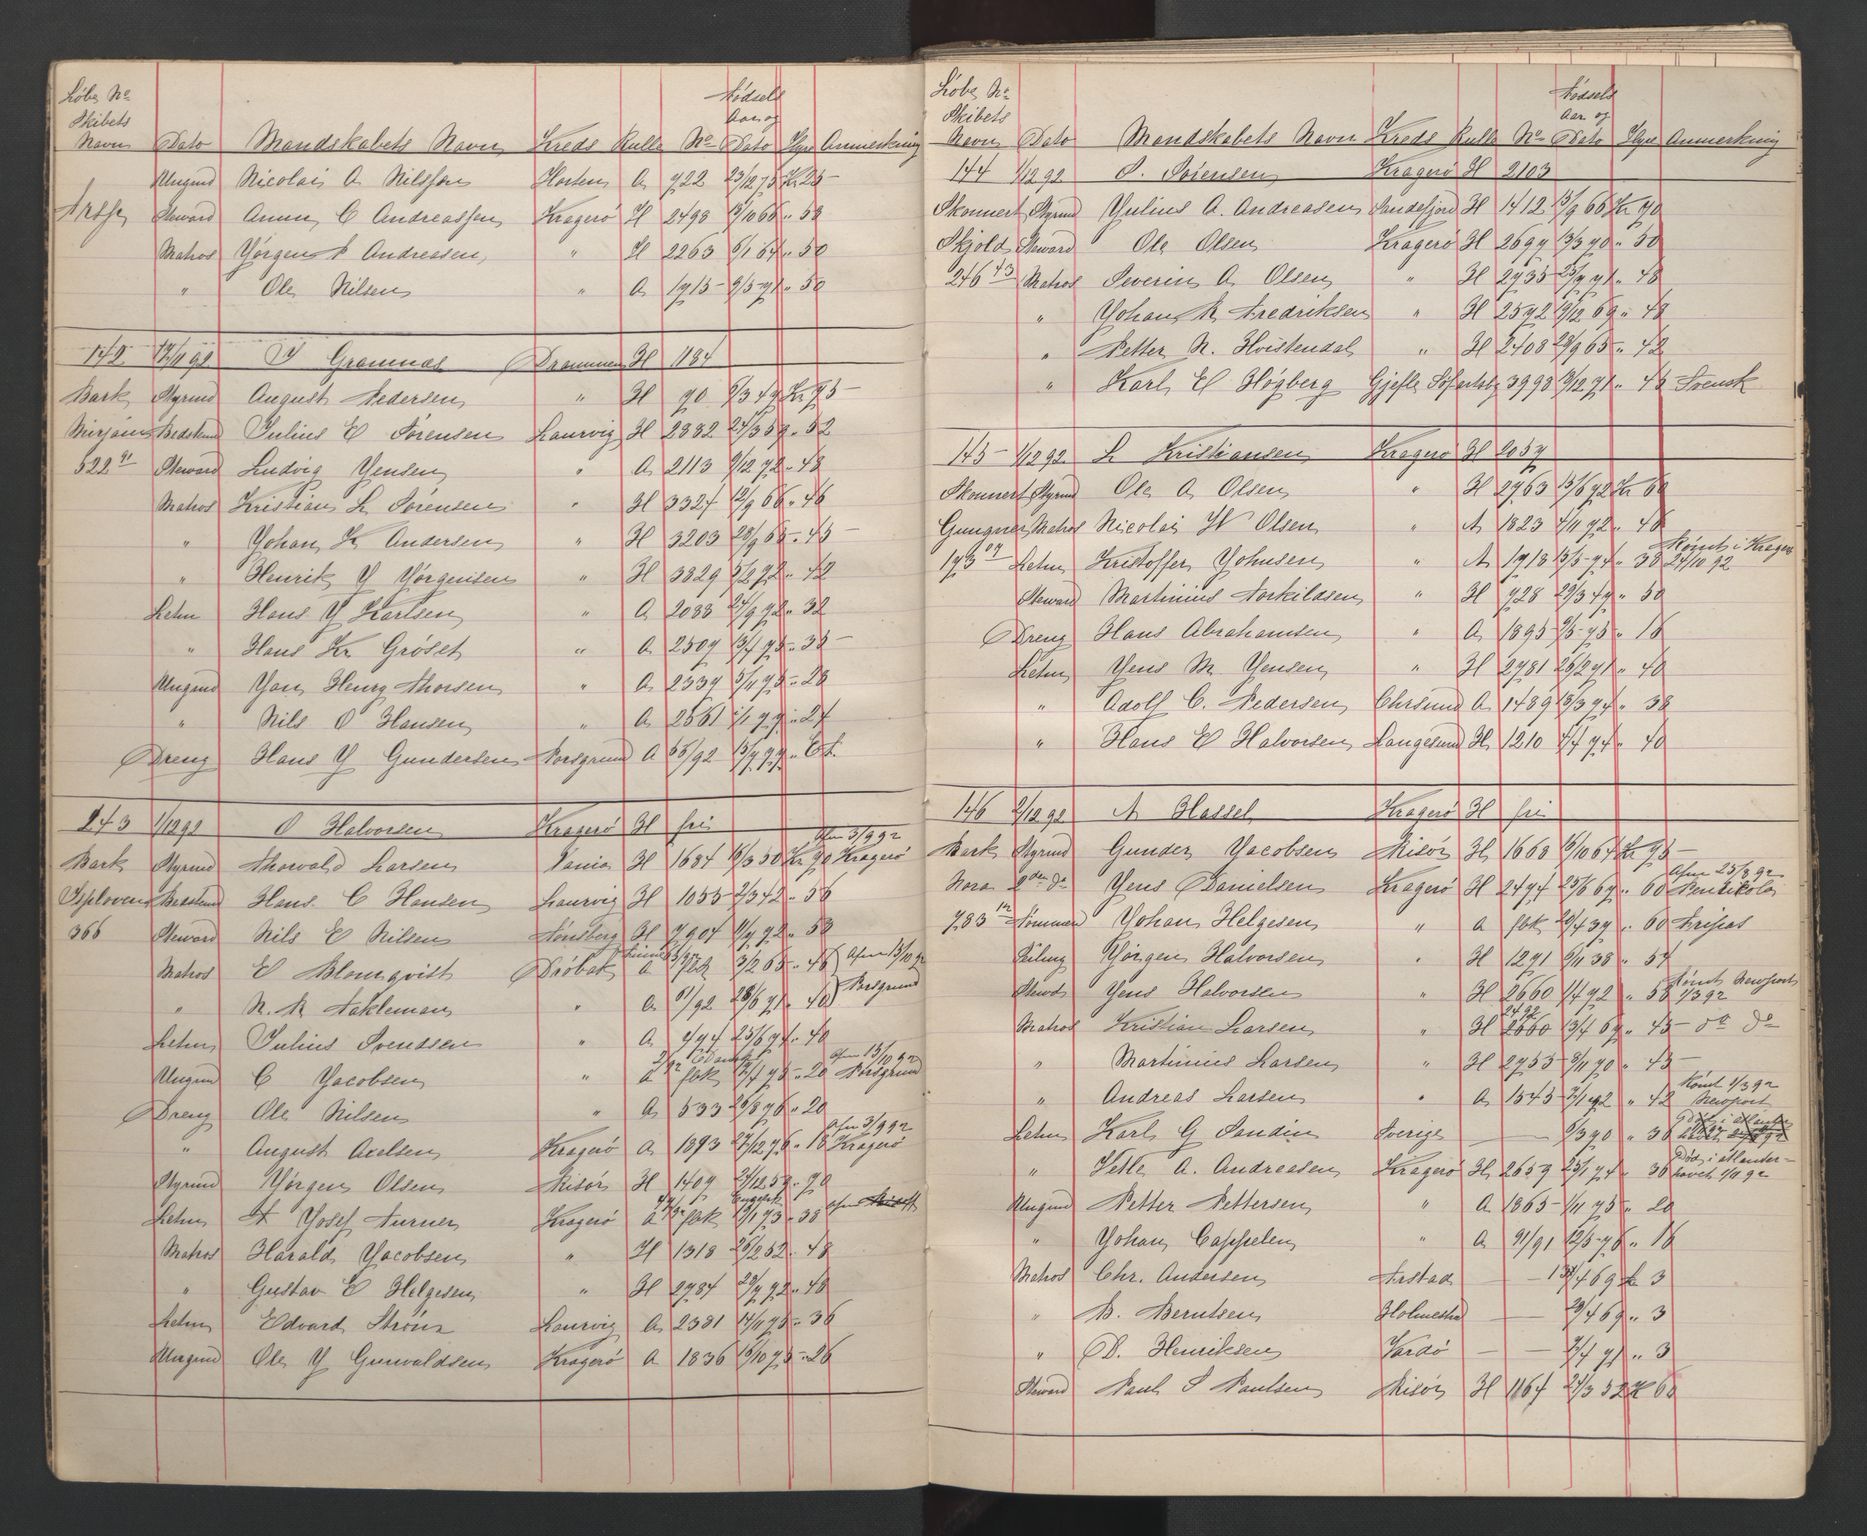 Løbe No
Skibets
Navn Dato Mandskabets Navn Kreds Rulle No Fødsels Aar og Dato Hyre Anmerkning
Ungmd Nicolai A Nilssen Horten A 722 23/12 75 Kr 25
Steward Anun C Andreassen Kragerø H 2498 66 " 58
Matros Jørgen A Andreasen " H 2263 6/1 64 " 50
" Ole Nilsen " A 1715 9/5 71 " 50
142 17/11 92 J Gramnæs Drammen H 1184
Bark Styrmd August Pedersen " H 70 6/3 49 Kr 75
Mirjam Bedstmd Julius E Sørensen Laurvig H 2332 24/3 59 " 52
522 91 Steward Ludvig Jensen " A 2113 9/12 72 " 48
Matros Kristian L Sørensen " H 3324 12/9 66 " 46
" Johan K Andersen " H 3203 28/9 65 " 45
" Henrik J Jørgensen " H 3829 5/2 72 " 42
Letm Hans J Karlsen " A 2033 24/9 72 " 32
" Hans Kr Grøset " A 2507 13/4 75 " 35
Ungmd Jan Henry Thorsen " A 2337 5/11 75 " 28
" Nils O Hansen " A 2561 1/1 77 " 24
Dreng Hans J Gundersen Porsgrund A 65/92 15/7 77 "
143 1/12 92 O Halvorsen Kragerø H fri
Bark Styrmd Thorvald Larsen H 1684 15/3 50 Kr 70 afm 3/9 92 Kragerø
Bedstmd Hans C Hansen Laurvig H 1055 2/3 42 " 56
366 Steward Nils E Nilsen Tønsberg H 7904 9/7 72 " 53
Matros E Blomqvist Drøbak A 3/2 65 " 45 afm 13/10 92
" N. M Takleman " A 81/92 28/6 71 " 40 Porsgrund
Letm Julius Svendsen " A 494 25/6 74 " 40
Ungmd C Jacobsen " A fbk 75 " 20 afm 13/10 92 Porsgrund
Dreng Ole Nilsen " A 533 26/8 76 " 20
" August Axelsen Kragerø A 1893 27/12 76 " 18 afm 3/9 92 Kragerø
Styrmd Jørgen Olsen Risør H 1407 21/12 59 " 70
Letm A Josef Turner Kragerø A fbk Engelsk 13/1 73 " 38 afm
Matros Harald Jacobsen " H 1318 26/2 52 " 48
" Gustav E Helgesen " H 2784 29/7 72 " 48
Letm Edvard Strøm Laurvig A 2381 14/11 75 " 36
Ungmd Ole J Gunvaldsen Kragerø A 1836 16/10 75 " 26
Løbe No
Skibets
Navn Dato Mandskabets Navn Kreds Rulle No Fødsels Aar og Dato Hyre Anmerkning
144 1/12 92 S. Sørensen Kragerø H 2103
Skonnert Styrmd Julius A. Andreasen Sandefjord H 1412 15/9 66 Kr 70
Skjold Steward Ole Olsen Kragerø H 2697 13/3 70 " 50
246 43 Matros Severin A Olsen " H 2735 25/7 71 " 48
" Johan M Fredriksen " H 2592 19/12 69 " 48
" Petter N. Hvistendal " H 2408 29/9 65 " 42
" Karl E Høgberg Gjefle Søfartsbg 3993 19/12 71 " 45 Svensk
145 1/12 92 L Kristiansen Kragerø H 2057
Skonnert Styrmd Ole A Olsen " H 2763 15/6 72 Kr 60
Gungner Matros Nicolai W Olsen " A 1823 4/11 72 " 46
193 07 Letm Kristoffer Johnsen " A 1918 13/5 74 " 38 Rømt i Kragerø 24/10 92
Steward Martinius Torkildsen " H 728 29/3 49 " 50
Dreng Hans Abrahamsen " A 1895 9/5 75 " 16
Letm Jens M Jensen " H 2781 26/2 71 " 40
" Adolf C. Pedersen Chrsund A 1489 13/3 74 " 38
" Hans E Halvorsen Langesund H 1210 4/4 74 " 40
146 2/12 92 A Hassel Kragerø H fri
Bark Styrmd Gunder Jacobsen Risør H 1668 16/10 64 Kr 75
Nora 2den do Jens Danielsen Kragerø H 2474 25/6 69 " 60 afm 25/8 92 Pensikola
783 12 Tømmermd Johan Helgesen " A fbk 20/4 39 " 60 Fripas
Jørgen Halvorsen " H 1291 9/11 38 " 54
Stewd Jens Halvorsen " H 2660 1/4 72 " 58 Rømt Newport 1/3 92
Matros Kristian Larsen " H 2492 2660 13/4 69 " 45 do do
" Martinius Larsen " H 2753 8/11 70 " 45
" Andreas Larsen " A 1545 7/1 72 " 42 Rømt 1/3 92 Newport
Letm Karl G Sandin Sverige 5/3 70 " 36
" Vetle A. Andreasen Kragerø H 2659 25/1 74 " 36 Død i atlanterhavet 2/11 92
Ungmd Petter Pettersen " A 1865 1/11 75 " 20
" Johan Cappelen " A 91/91 12/5 76 " 16
Matros Chr. Andersen 13/4 69 £ 3
" B. Berntsen Holmestrd 29/4 69 " 3
" D. Henriksen Vardø 2/4 71 " 3
Steward Paul S Paulsen Risør H 1164 24/3 52 Kr 60